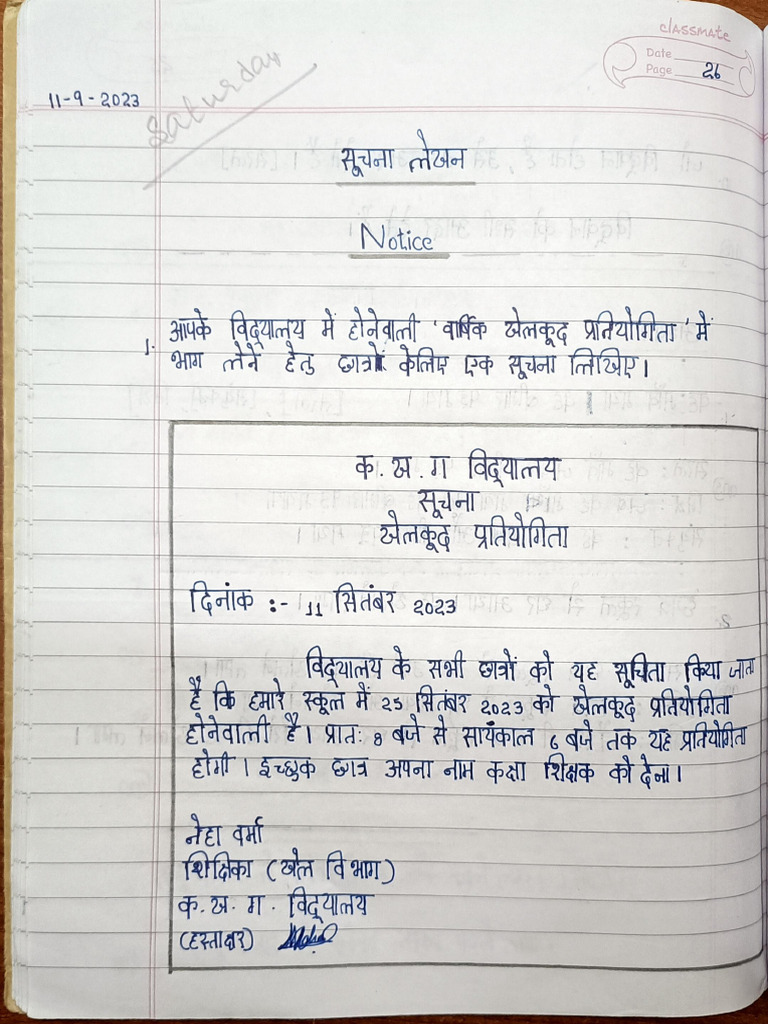 classmate
Date
Page 26
11-9-2023
Saturday
सूचना लेखन
Notice
1. आपके विद्यालय में होनेवाली 'वार्षिक खेलकूद प्रतियोगिता' में
भाग लेने हेतु छात्रों केलिए एक सूचना लिखिए।
क. ख. ग विद्यालय
सूचना
खेलकूद प्रतियोगिता
दिनांक :- 11 सितंबर 2023
विद्यालय के सभी छात्रों को यह सूचिता किया जाता
है कि हमारे स्कूल में 25 सितंबर 2023 को खेलकूद प्रतियोगिता
होनेवाली है। प्रातः 8 बजे से सायंकाल 6 बजे तक यह प्रतियोगिता
होगी। इच्छुक छात्र अपना नाम कक्षा शिक्षक को देना।
नेहा वर्मा
शिक्षिका (खेल विभाग)
क. ख. ग. विद्यालय
(हस्ताक्षर)